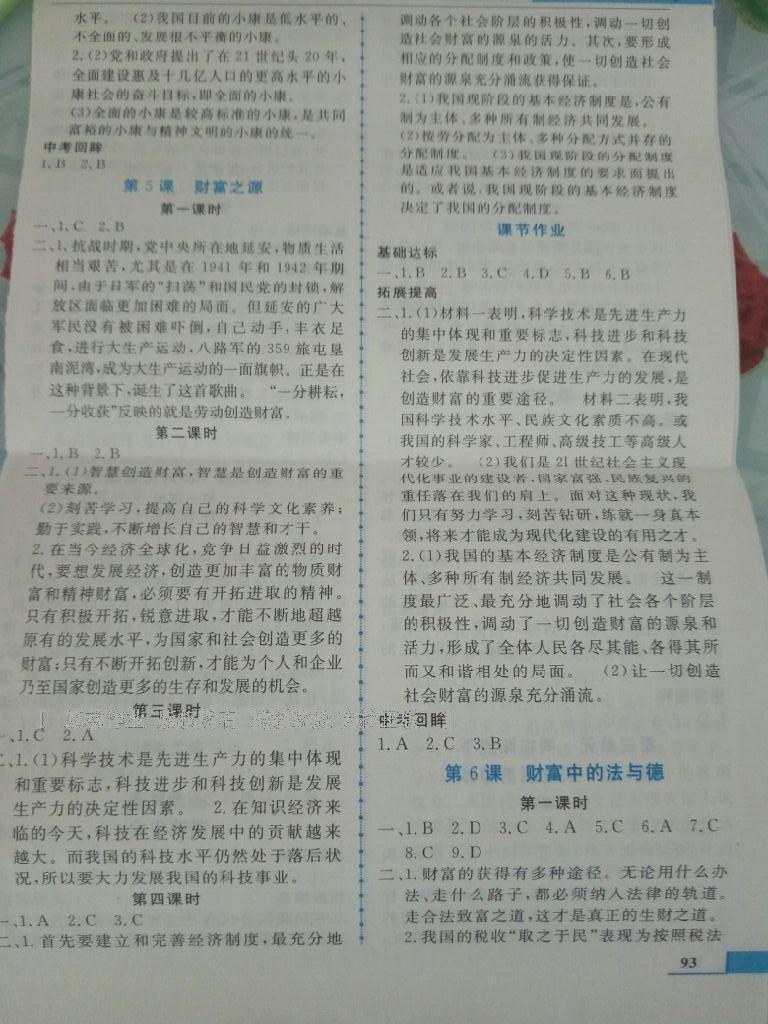 水平。 (2)我国目前的小康是低水平的、
不全面的、发展很不平衡的小康。
2.(2)党和政府提出了在21世纪头20年,
全面建设惠及十几亿人口的更高水平的小
康社会的奋斗目标,即全面的小康。
(3)全面的小康是较高标准的小康,是共同
富裕的小康与精神文明的小康的统一。
中考回眸
1.B 2.B
第5课 财富之源
第一课时
一、1.C 2.B
二、1.抗战时期,党中央所在地延安,物质生活
相当艰苦,尤其是在1941年和1942年期
间,由于日军的“扫荡”和国民党的封锁,解
放区面临更加困难的局面。但延安的广大
军民没有被困难吓倒,自己动手,丰衣足
食,进行大生产运动,八路军的359旅屯垦
南泥湾,成为大生产运动的一面旗帜。正是在
这种背景下,诞生了这首歌曲。 “一分耕耘,
一分收获”反映的就是劳动创造财富。
第二课时
一、1.B 2.B
二、1.(1)智慧创造财富,智慧是创造财富的重
要来源。
(2)刻苦学习,提高自己的科学文化素养;
勤于实践,不断增长自己的智慧和才干。
2.在当今经济全球化,竞争日益激烈的时
代,要想发展经济,创造更加丰富的物质财
富和精神财富,必须要有开拓进取的精神。
只有积极开拓,锐意进取,才能不断地超越
原有的发展水平,为国家和社会创造更多的
财富;只有不断开拓创新,才能为个人和企业
乃至国家创造更多的生存和发展的机会。
第三课时
一、1.C 2.A
二、1.(1)科学技术是先进生产力的集中体现
和重要标志,科技进步和科技创新是发展
生产力的决定性因素。 2.在知识经济来
临的今天,科技在经济发展中的贡献越来
越大。而我国的科技水平仍然处于落后状
况,所以要大力发展我国的科技事业。
第四课时
一、1.A 2.C 3.C
二、1.首先要建立和完善经济制度,最充分地
调动各个社会阶层的积极性,调动一切创
造社会财富的源泉的活力。其次,要形成
相应的分配制度和政策,使一切创造社会
财富的源泉充分涌流获得保证。
2.(1)我国现阶段的基本经济制度是,公有
制为主体、多种所有制经济共同发展。
(2)按劳分配为主体、多种分配方式并存的
分配制度。 (3)我国现阶段的分配制度
是适应我国基本经济制度的要求而提出
的。或者说,我国现阶段的基本经济制度
决定了我国的分配制度。
课节作业
基础达标
一、1.B 2.B 3.C 4.D 5.B 6.B
拓展提高
二、1.(1)材料一表明,科学技术是先进生产力
的集中体现和重要标志,科技进步和科技
创新是发展生产力的决定性因素。在现代
社会,依靠科技进步促进生产力的发展,是
创造财富的重要途径。 材料二表明,我
国科学技术水平、民族文化素质不高。或
我国的科学家、工程师、高级技工等高级人
才较少。 (2)我们是21世纪社会主义现
代化事业的建设者,国家富强、民族复兴的
重任落在我们的肩上。面对这种现状,我
们只有努力学习,刻苦钻研,练就一身真本
领,将来才能成为现代化建设的有用之才。
2.(1)我国的基本经济制度是公有制为主
体、多种所有制经济共同发展。 这一制
度最广泛、最充分地调动了社会各个阶层
的积极性,调动了一切创造财富的源泉和
活力,形成了全体人民各尽其能、各得其所
而又和谐相处的局面。 (2)让一切创造
社会财富的源泉充分涌流。
中考回眸
1.A 2.C 3.B
第6课 财富中的法与德
第一课时
一、1.B 2.D 3.C 4.A 5.C 6.A 7.C
8.C 9.D
二、1.财富的获得有多种途径。无论用什么办
法、走什么路子,都必须纳入法律的轨道。
走合法致富之道,这才是真正的生财之道。
2.我国的税收“取之于民”表现为按照税法
93